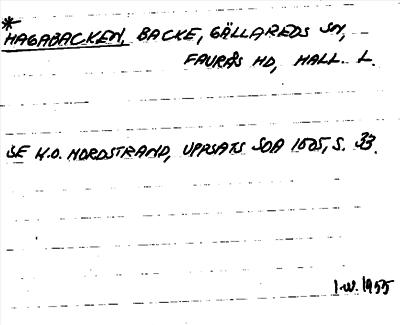 *
HAGABACKEN, BACKE, GÄLLAREDS SN,
FAURÅS HD, HALL. L.
SE K.O. NORDSTRAND, UPPSATS SOA 1605, S. 33.
I.W. 1955